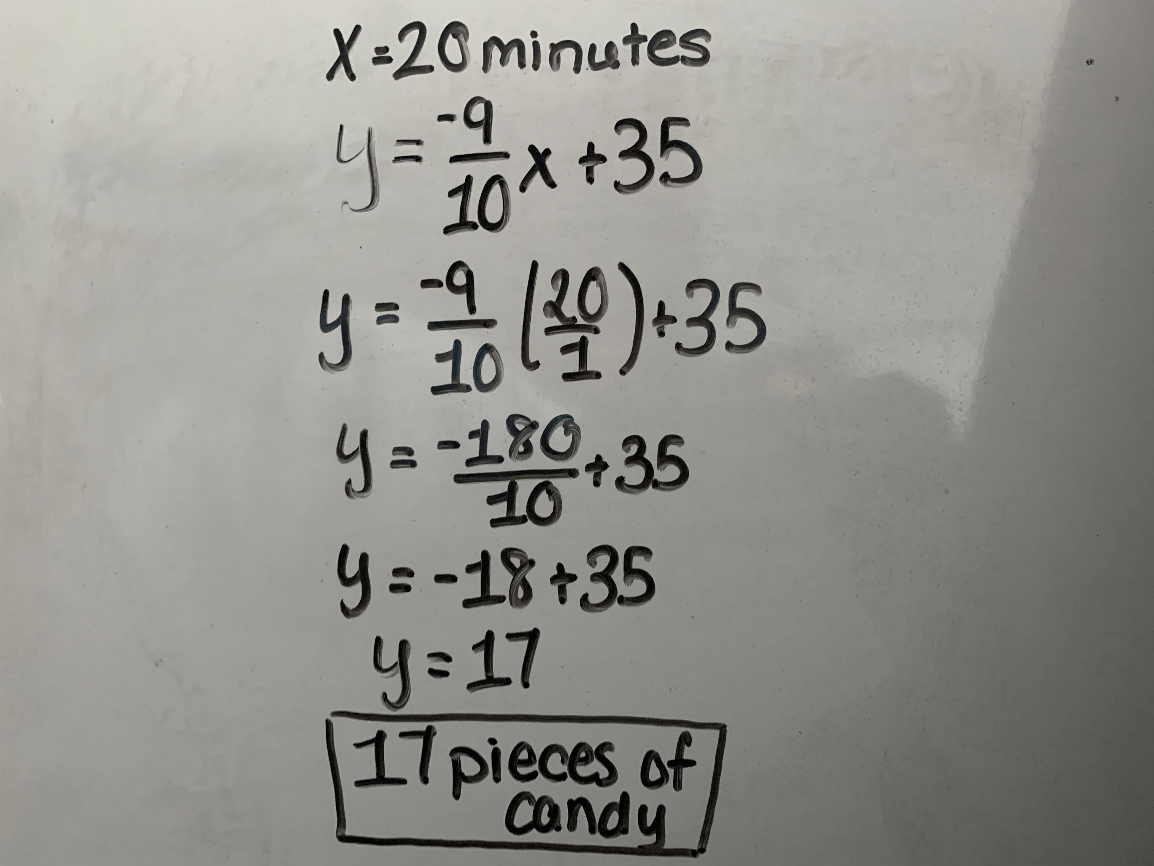 x=20 minutes
y = -9/10 x + 35
y = -9/10 (20/1) + 35
y = -180/10 + 35
y = -18 + 35
y = 17
17 pieces of
candy